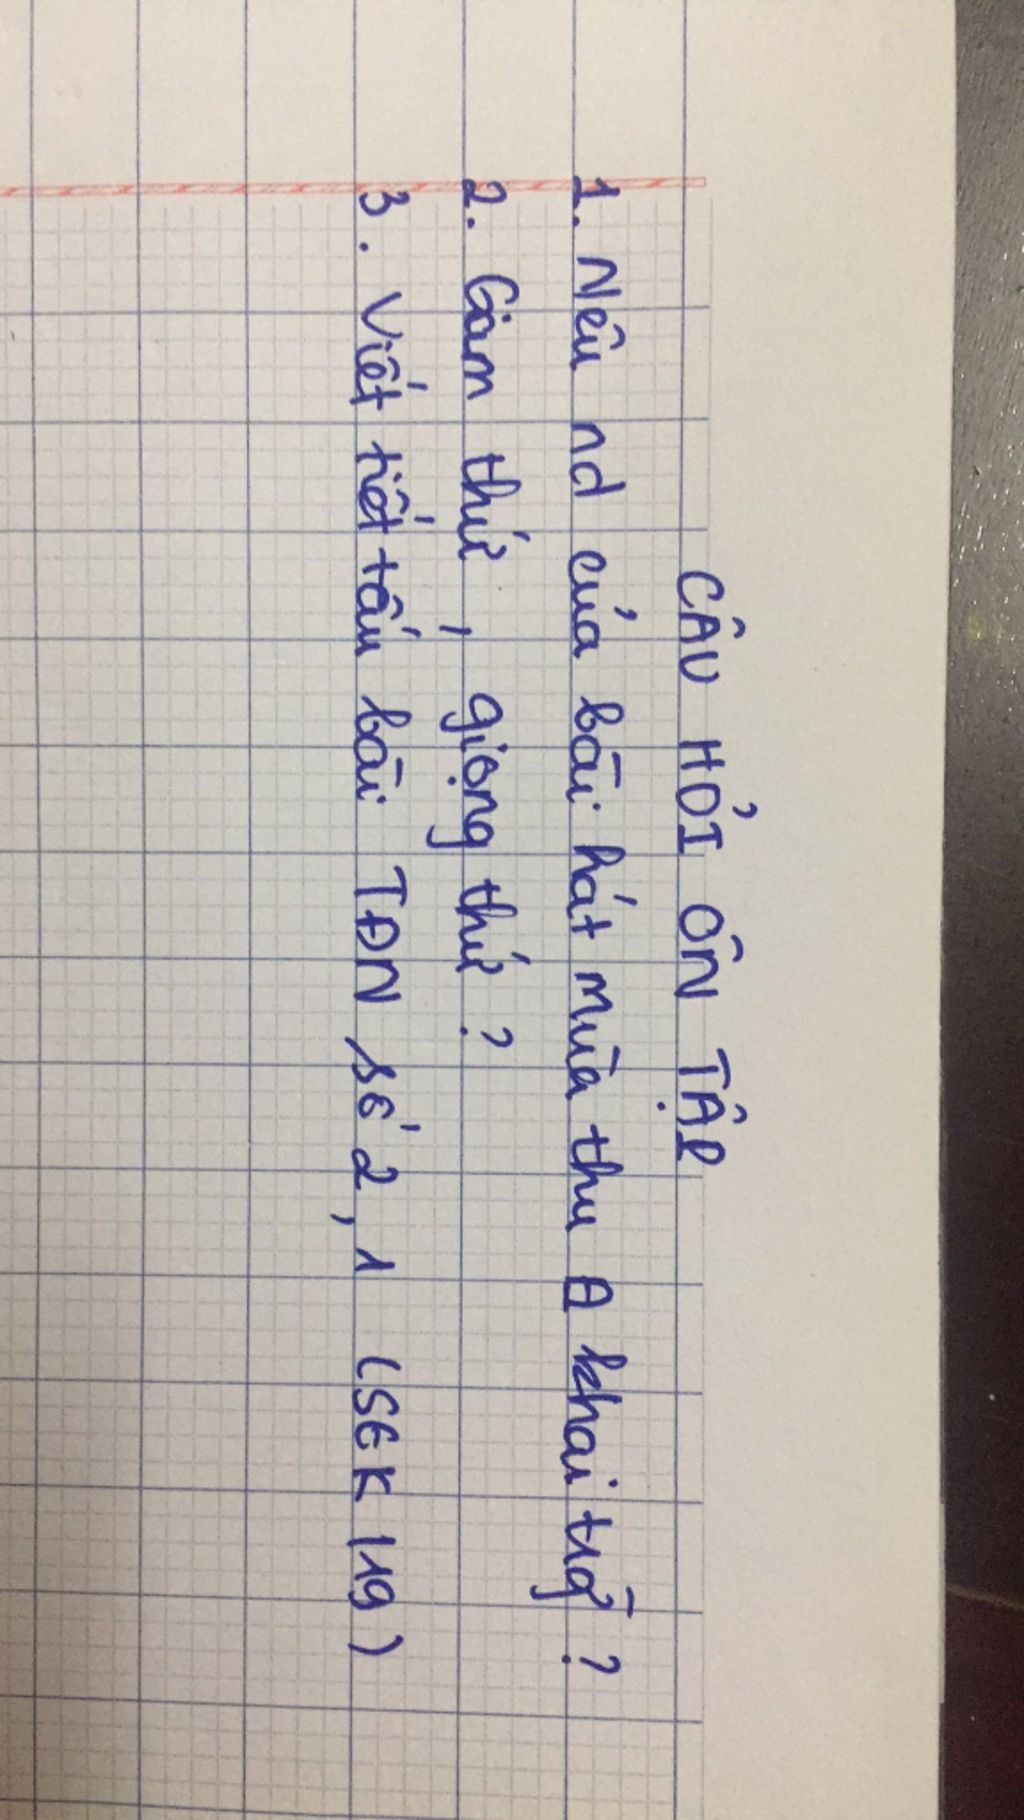 CÂU HỎI ÔN TẬP
1. Nêu nd của bài hát mùa thu A khai trg ?
2. Gam thứ , giọng thứ ?
3. Viết tiết tấu bài TĐN số 2, 1 (SGK 119)